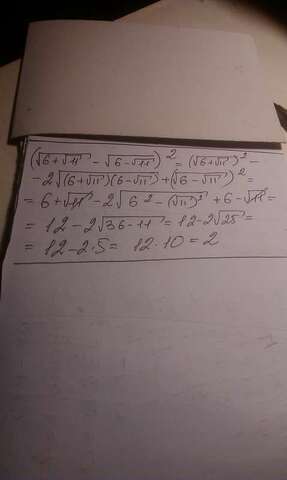 (√6+√11 - √6-√11)² = (√6+√11)² -
- 2√(6+√11)(6-√11) + (√6-√11)² =
= 6+√11 - 2√6²-(√11)² + 6-√11 =
= 12 - 2√36-11 = 12-2√25 =
= 12-2·5 = 12·10 = 2